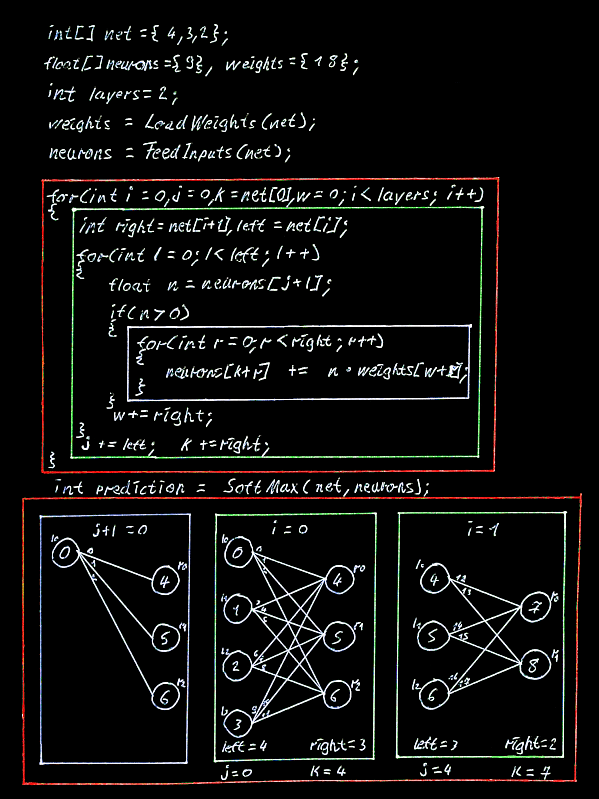 int[] net = { 4,3,2};
float[] neurons = {9}, weights = {18};
int layers = 2;
weights = LoadWeights(net);
neurons = FeedInputs(net);
for(int i = 0, j = 0, k = net[0], w = 0; i < layers; i++)
{
int right = net[i+1], left = net[i];
for(int l = 0; l < left; l++)
{
float n = neurons[j+l];
if(n > 0)
{
for(int r = 0; r < right; r++)
{
neurons[k+r] += n * weights[w+r];
}
}
w += right;
}
j += left; k += right;
}
int prediction = SoftMax(net, neurons);
j+l = 0
l0 0 0 1 2
r0 4
r1 5
r2 6
i = 0
l0 0
l1 1 3 4 5
l2 2 6
l3 3 9 11
r0 4
r1 5
r2 6
left = 4 right = 3
j = 0 k = 4
i = 1
l0 4 12 13
l1 5 14 15
l2 6 16 17
r0 7
r1 8
left = 3 right = 2
j = 4 k = 7